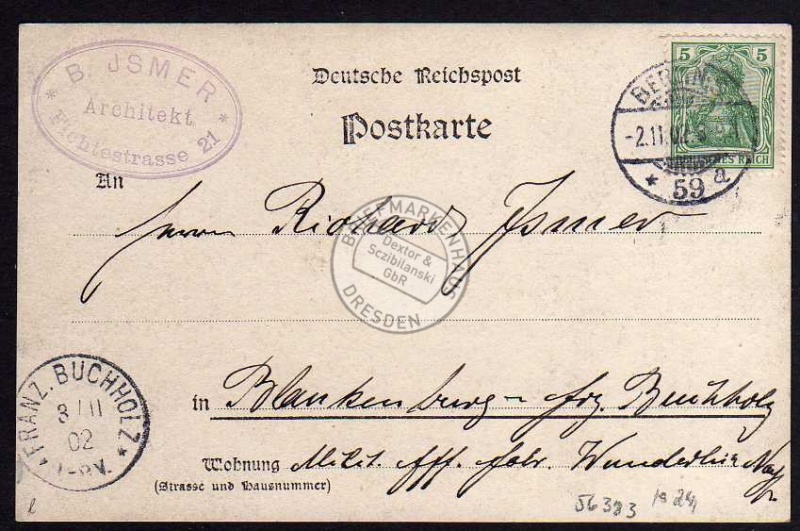 B. JSMER
Architekt
Fichtestrasse 21
Deutsche Reichspost
Postkarte
5 5
BERLIN
-2.11.02
* 59 a
REICH
An
Herrn Richard Jsmer
BRIEFMARKENHAUS
Dextor &
Sczibilanski
GbR
DRESDEN
FRANZ. BUCHHOLZ
3 11
02
in Blankenburg - frz. Buchholz
Wohnung Milit. Eff. Fabr. Wunderlich
(Strasse und Hausnummer)
56383